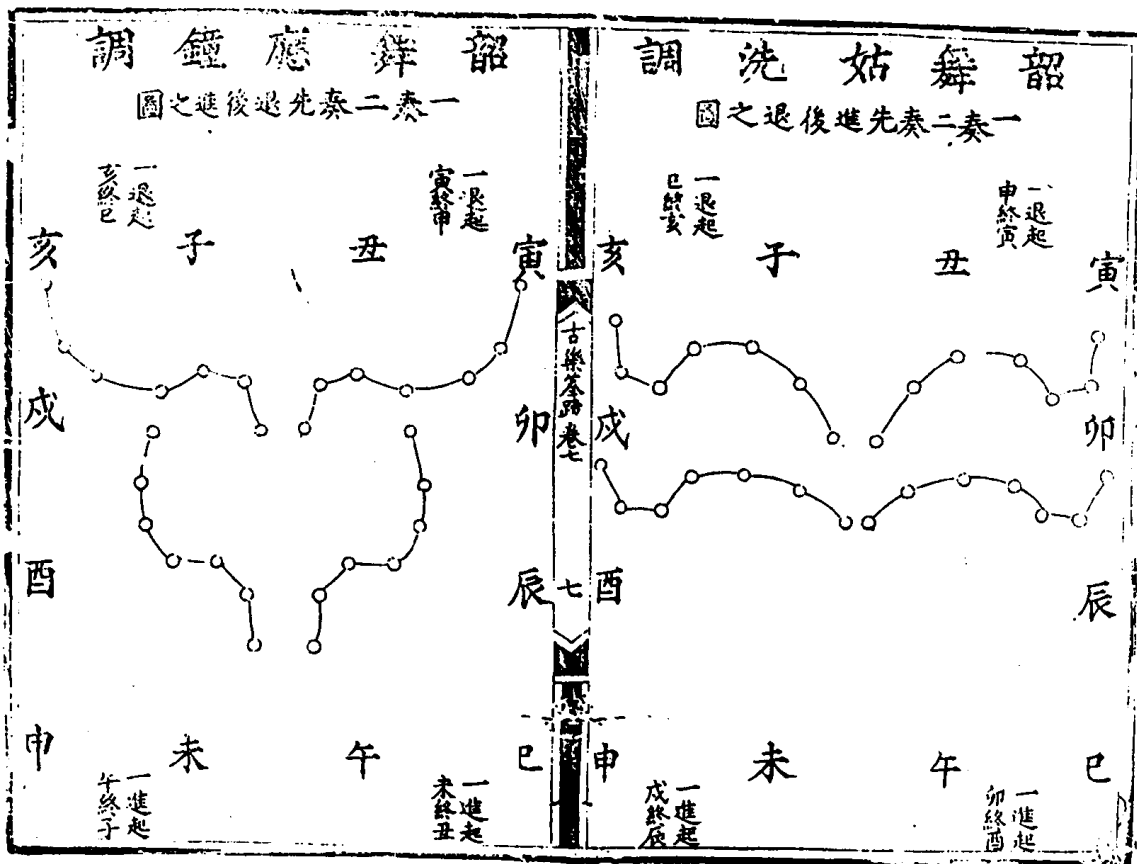 韶舞姑洗調
一奏二奏先進後退之圖
一退起
申終寅
一退起
巳終亥
寅 丑 子 亥
卯 戌
辰 酉
巳 午 未 申
一進起
卯終酉
一進起
戌終辰
古樂筌蹄卷七
七
韶舞應鐘調
一奏二奏先退後進之圖
一退起
寅終申
一退起
亥終巳
寅 丑 子 亥
卯 戌
辰 酉
巳 午 未 申
一進起
未終丑
一進起
午終子